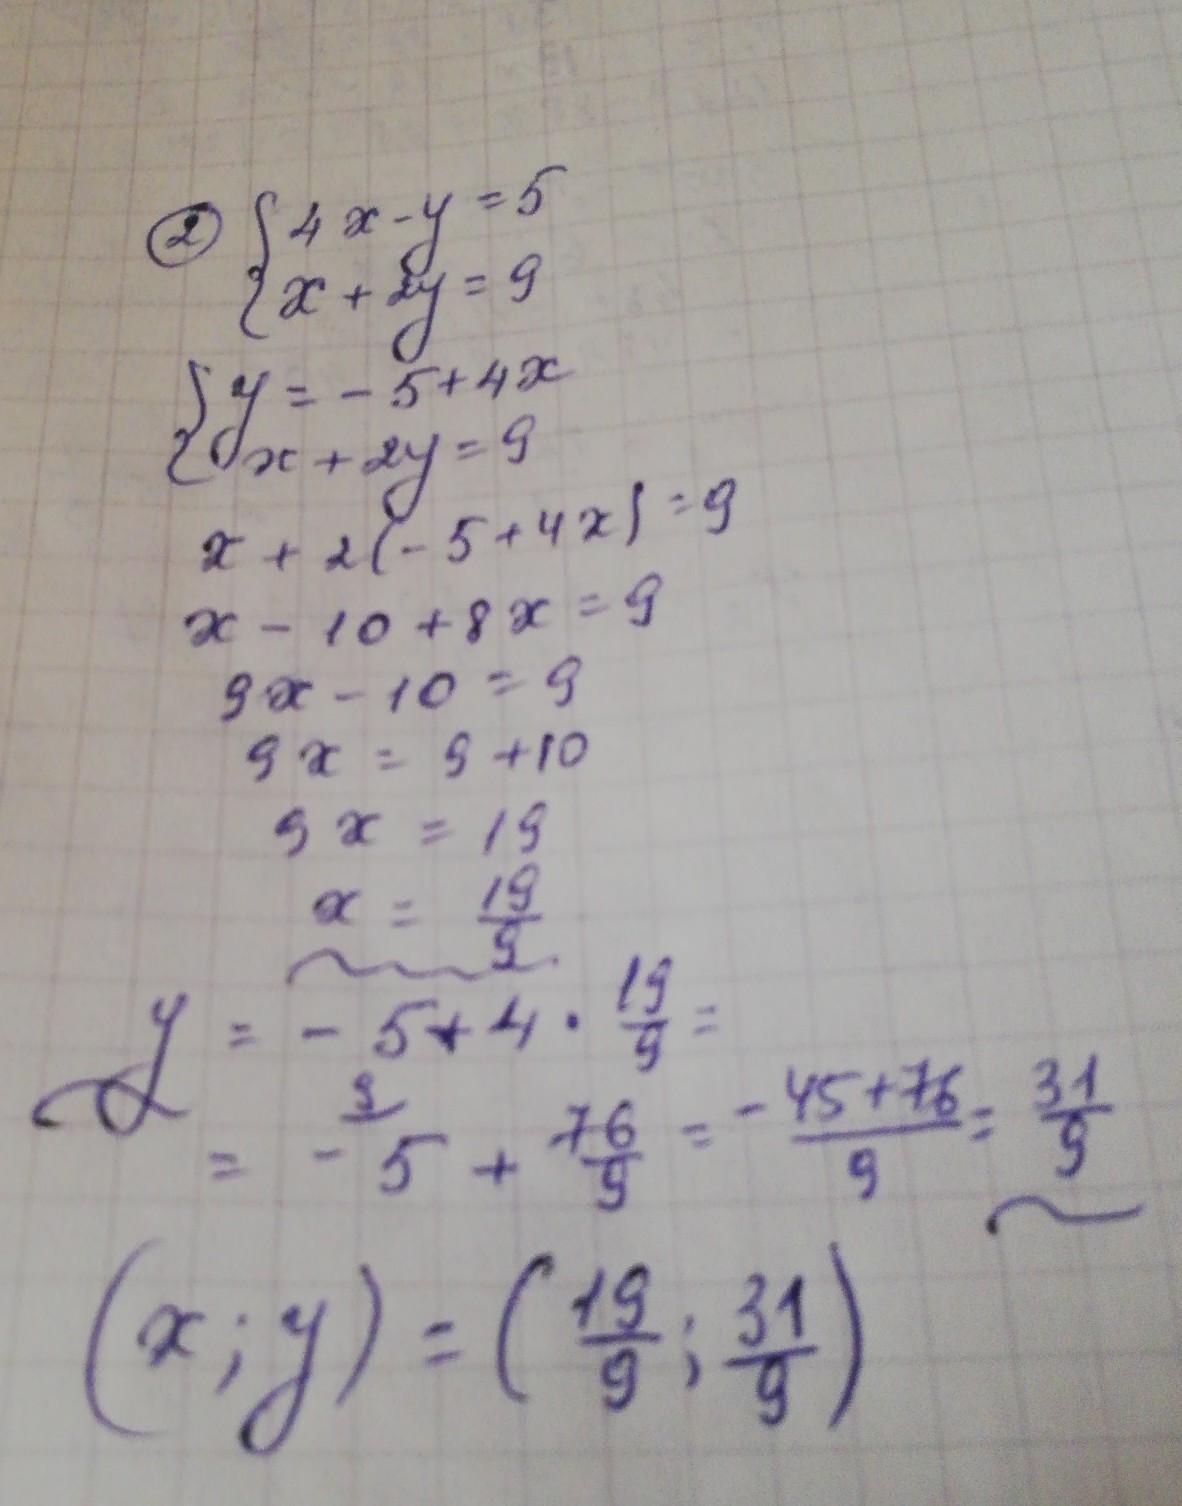 ② { 4x - y = 5
{ x + 2y = 9
{ y = - 5 + 4x
{ x + 2y = 9
x + 2(- 5 + 4x) = 9
x - 10 + 8x = 9
9x - 10 = 9
9x = 9 + 10
9x = 19
x = 19/9
y = - 5 + 4 · 19/9 =
9
= - 5 + 76/9 = (- 45 + 76)/9 = 31/9
(x ; y) = (19/9 ; 31/9)